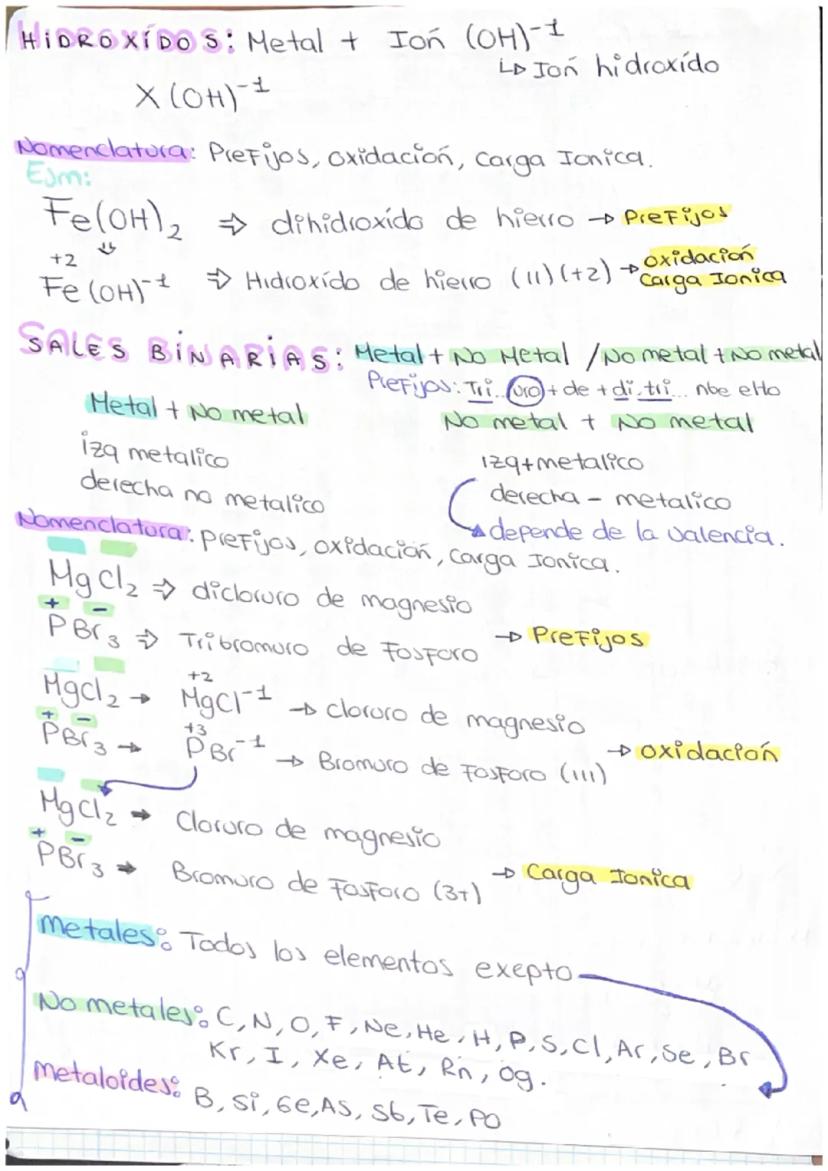 HiDROXÍDOS: Metal + Ioń (OH)⁻¹
↳ Ioń hidroxído
X(OH)⁻¹
Nomenclatura: PreFijos, oxidación, carga Ionica.
EJm:
Fe(OH)₂ ⇒ dihidroxído de hierro → PreFijos
+2
Fe(OH)⁻¹ ⇒ Hidroxído de hierro (II)(+2) → oxidación
Carga Ionica
SALES BiNARiAS: Metal + No Metal / No metal + No metal
PreFijos: Tri... uro + de + di, tri... nbe elto
Metal + No metal
No metal + No metal
izq metalico
izq + metalico
derecha no metalico
derecha - metalico
depende de la valencia.
Nomenclatura: PreFijos, oxidación, carga Ionica.
MgCl₂ ⇒ dicloruro de magnesio
+ -
PBr₃ ⇒ Tribromuro de FosForo → PreFijos
MgCl₂ → +2 MgCl⁻¹ → cloruro de magnesio
+ -
PBr₃ → +3 PBr⁻¹ → Bromuro de FosForo (III) → oxidación
MgCl₂ → Cloruro de magnesio
+ -
PBr₃ → Bromuro de FosForo (3+) → Carga Ionica
metales: Todos los elementos exepto
No metales: C, N, O, F, Ne, He, H, P, S, Cl, Ar, Se, Br
Kr, I, Xe, At, Rn, Og.
metaloides: B, Si, Ge, As, Sb, Te, Po